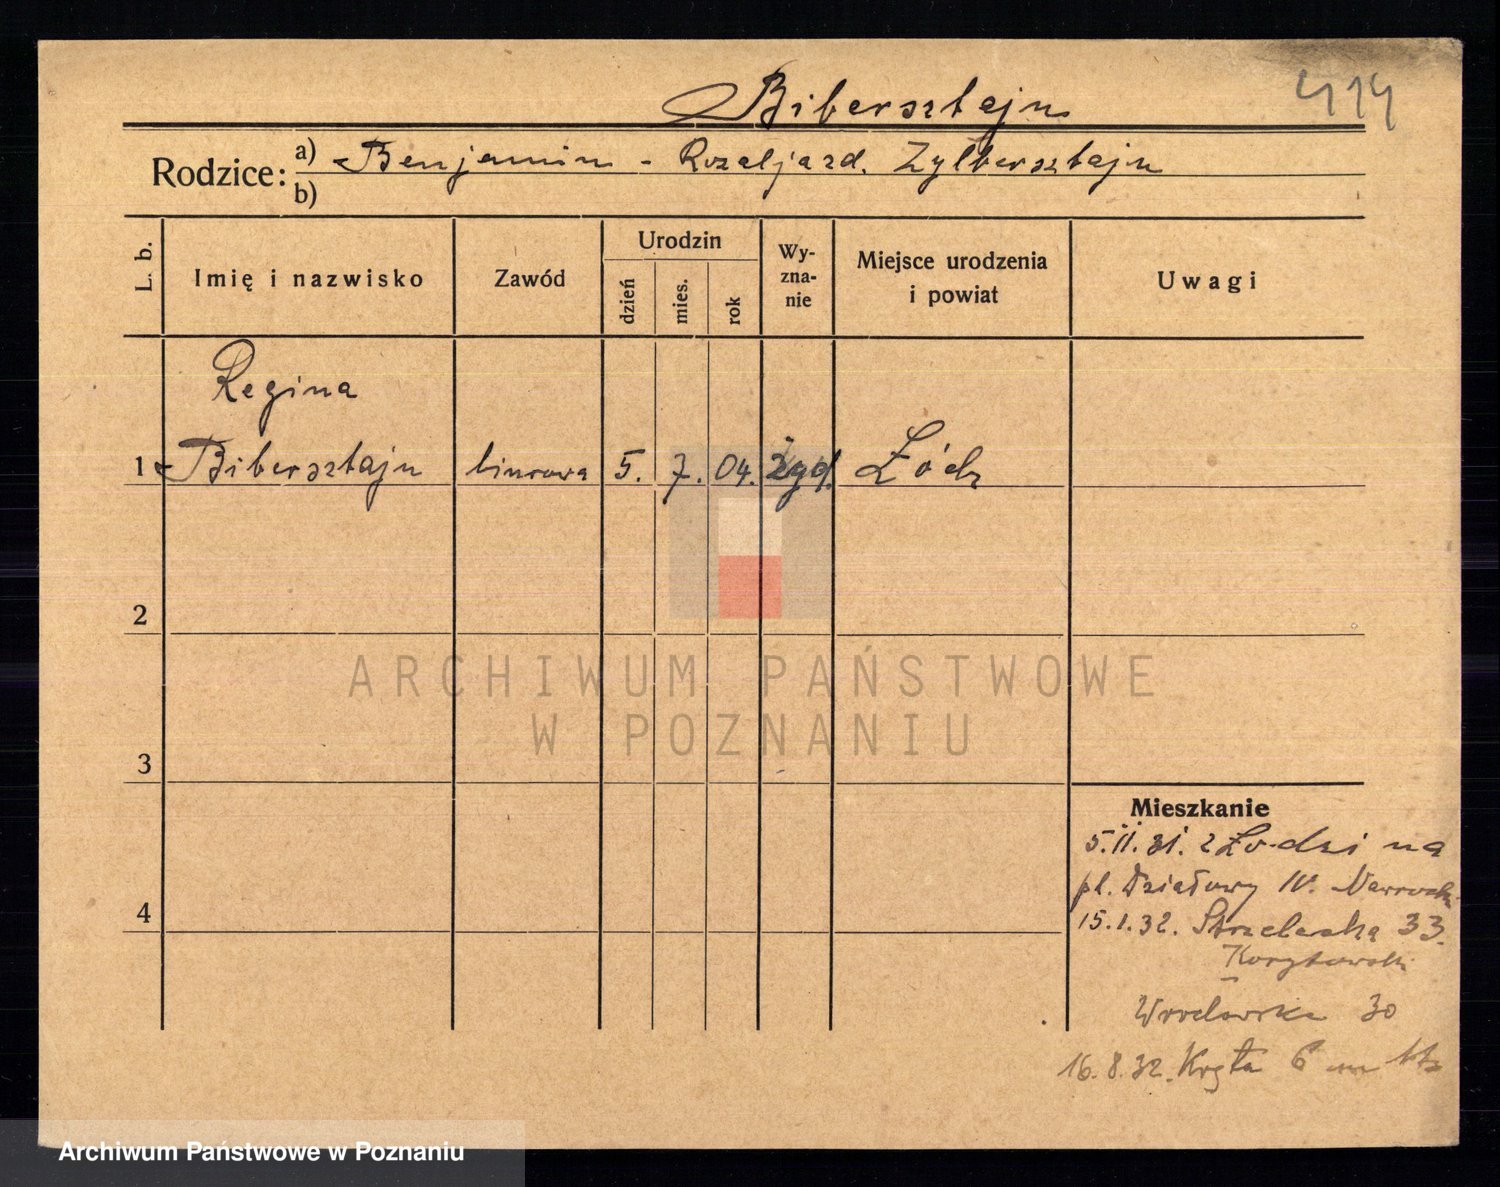 Bibersztajn
414
Rodzice: a) Benjamin - Rozalja zd. Zylbersztajn
b)
L. b.
Imię i nazwisko
Zawód
Urodzin
dzień
mies.
rok
Wy-
zna-
nie
Miejsce urodzenia
i powiat
Uwagi
Regina
1 Bibersztajn biurowa 5. 7. 04. żyd. Łódź
2
ARCHIWUM PAŃSTWOWE
W POZNANIU
3
Mieszkanie
5.II.31. z Łodzi na
pl. Działowy IV.
4
15.1.32. Strzelecka 33.
Korytowski
Wrocławska 30
16.8.32. Kręta 6 m
Archiwum Państwowe w Poznaniu